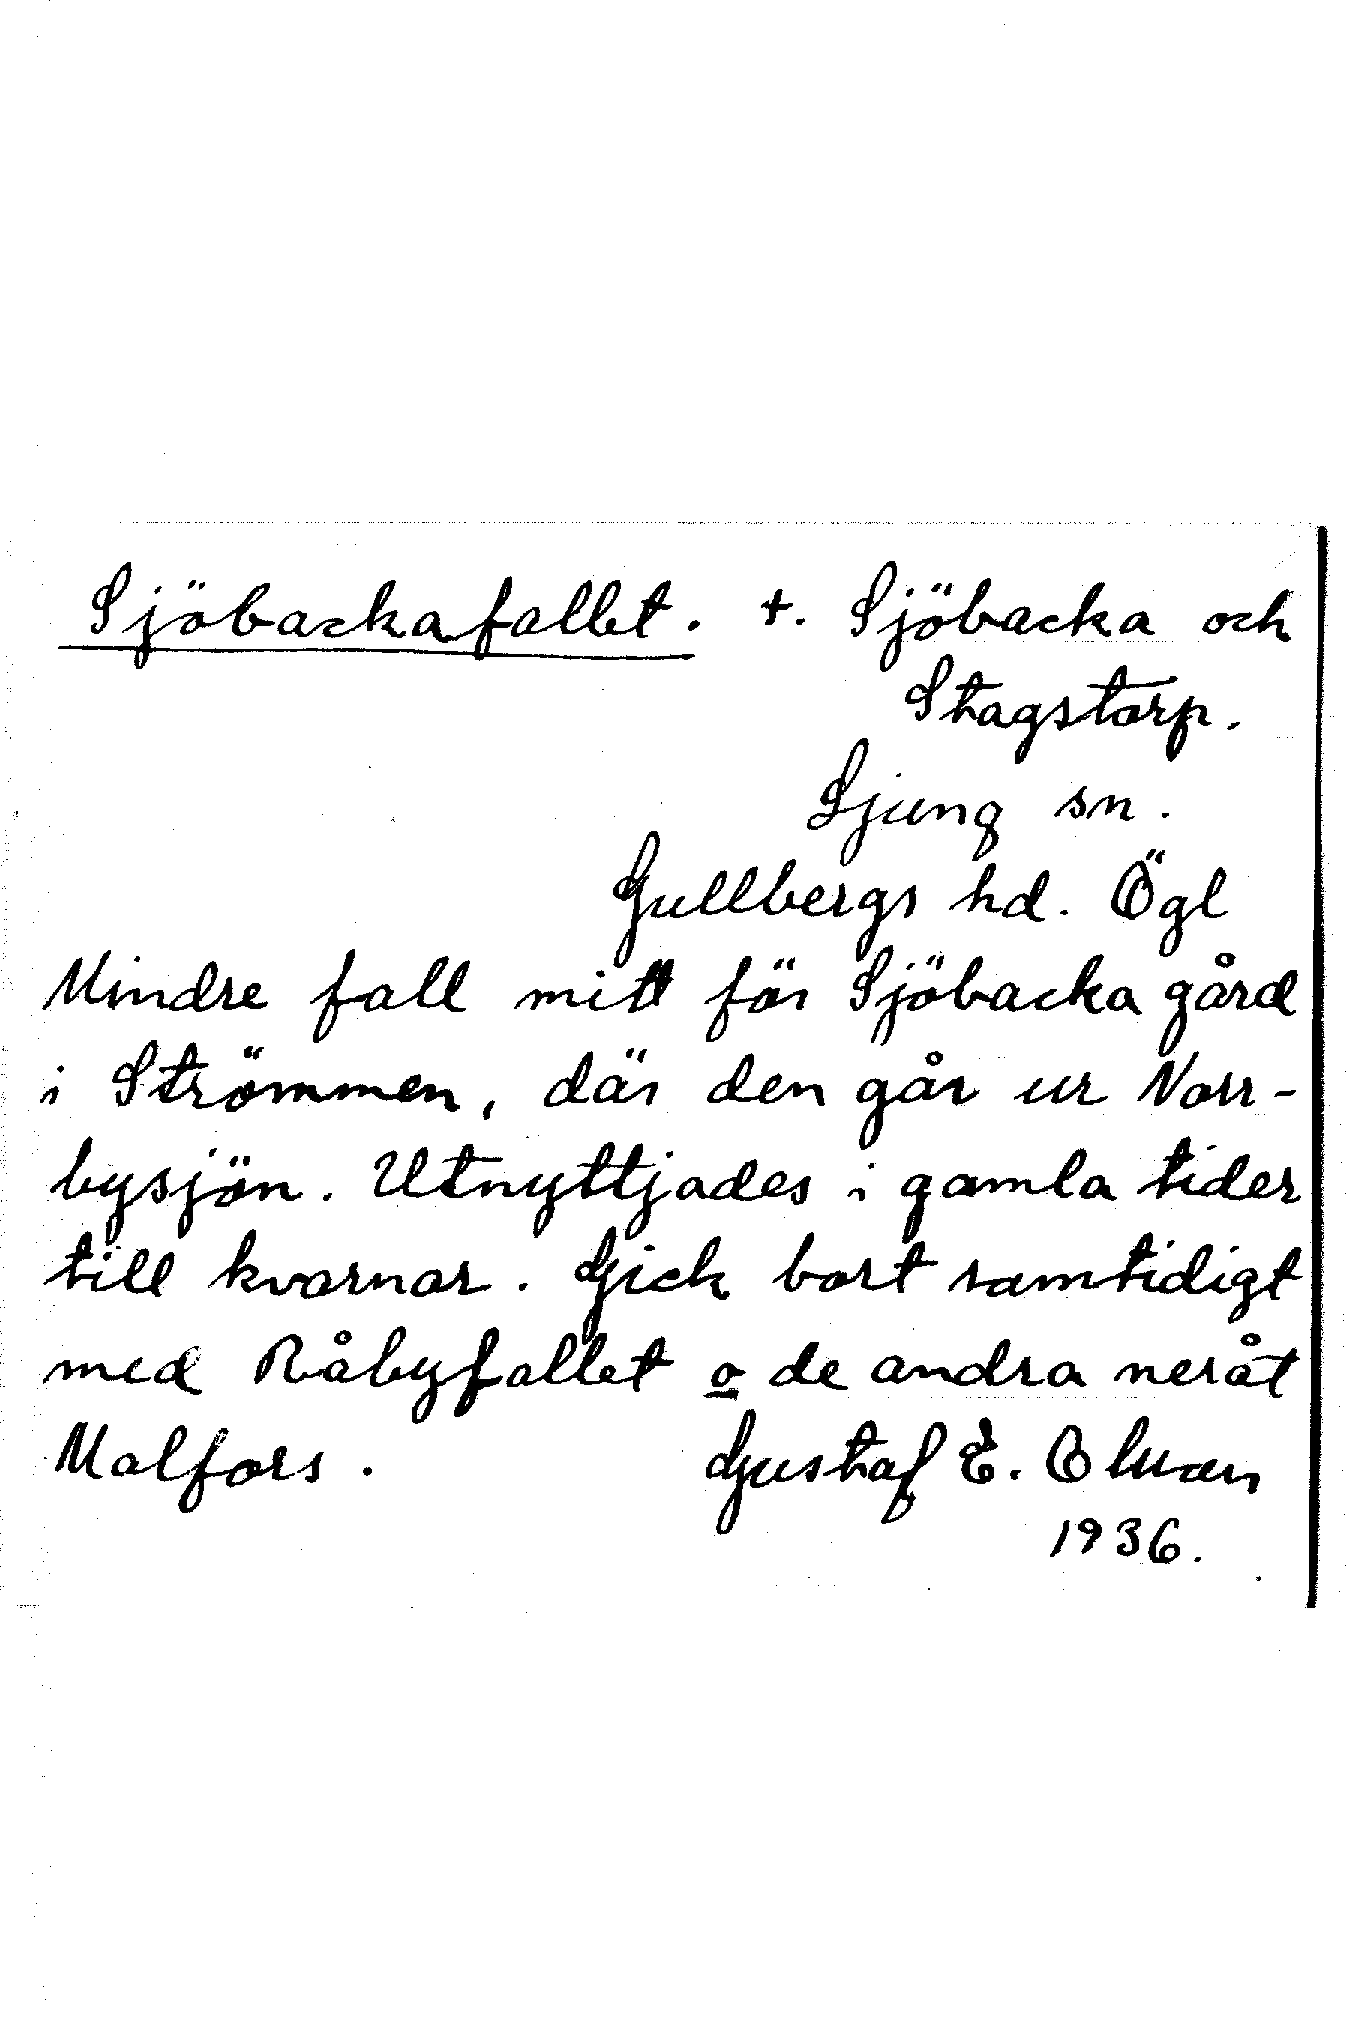 Sjöbackafallet. +. Sjöbacka och
Stagstorp.
Ljung sn.
Gullbergs hd. Ögl
Mindre fall mitt för Sjöbacka gård
i Strömmen, där den går ur Norr-
bysjön. Utnyttjades i gamla tider
till kvarnar. Gick bort samtidigt
med Råbyfallet o de andra neråt
Malfors. Gustaf E.
1936.